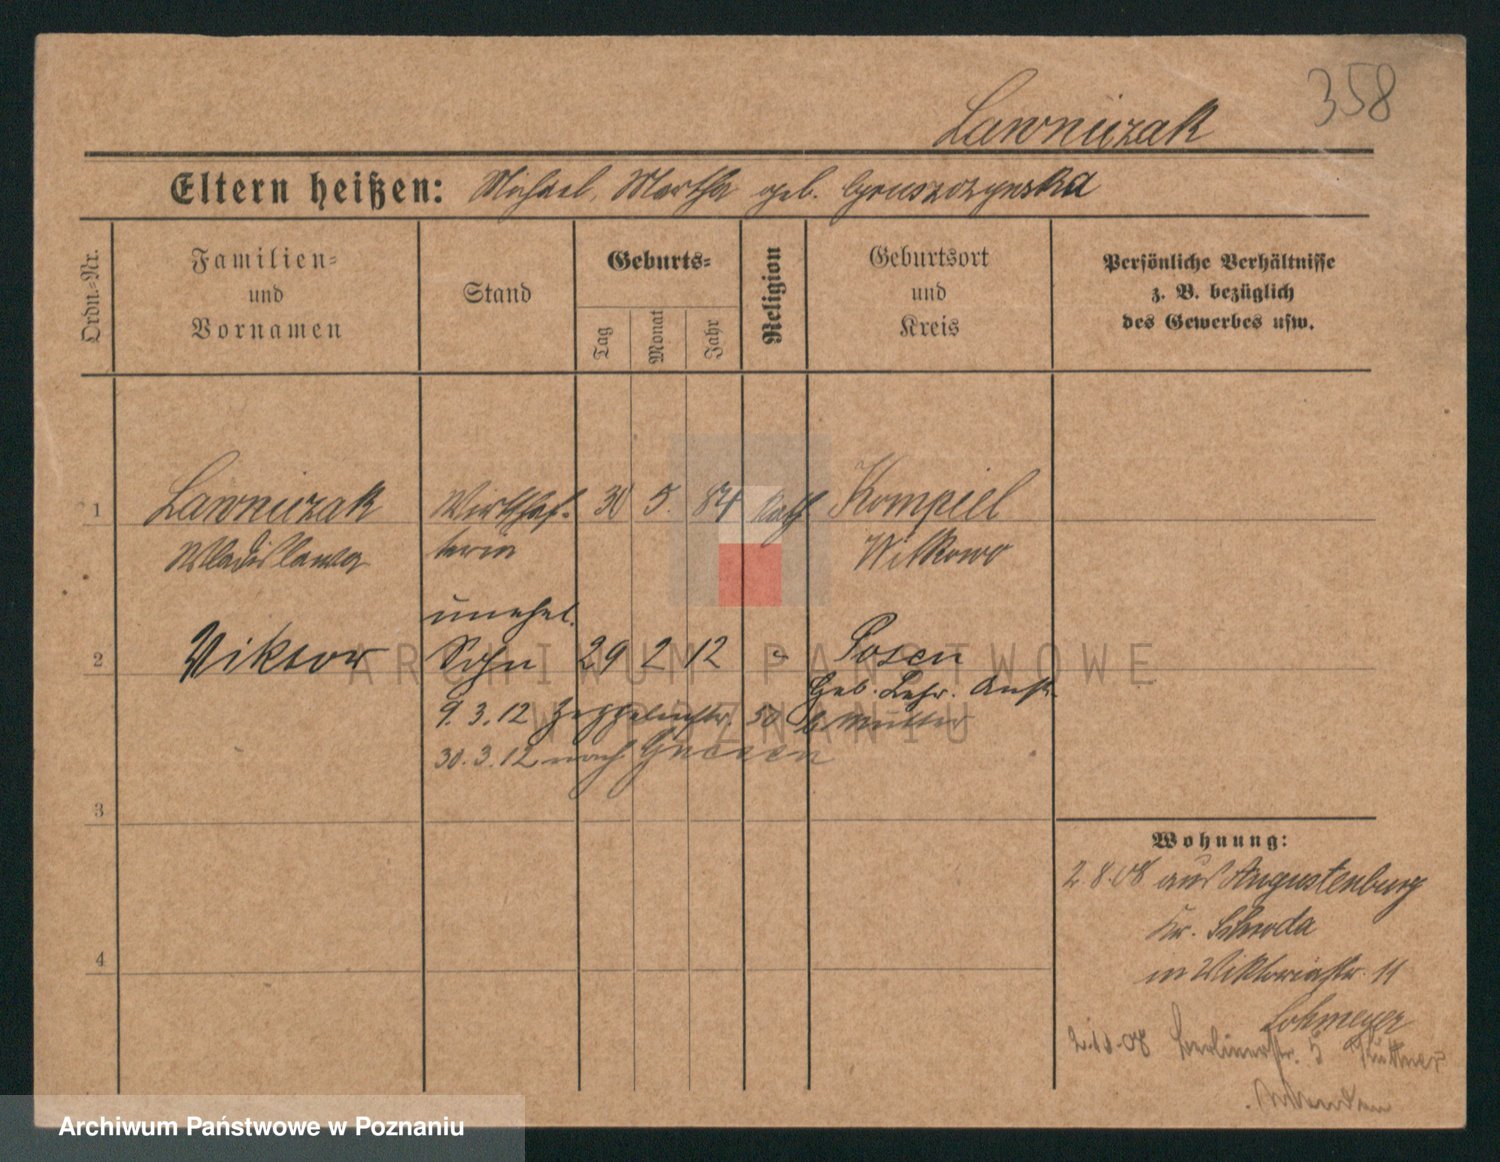 358
Lawniczak
Eltern heißen: Michael, Martha geb. Gruszczynska
Ordn.-Nr.
Familien-
und
Vornamen
Stand
Geburts-
Tag
Monat
Jahr
Religion
Geburtsort
und
Kreis
Persönliche Verhältnisse
z. B. bezüglich
des Gewerbes usw.
1 Lawniczak Wirthschaf- 30 5. 84 kath Kompiel
Wladislawa terin Wilkowo
unehel.
2 Viktor Sohn 29 2 12 " Posen
Geb. Lehr. Anst.
9. 3. 12 50 b. Mutter
30. 3. 12 nach Gnesen
3
4
Wohnung:
2.8.08 aus Augustenburg
Kr. Schroda
in Viktoriastr. 11
Lohmeyer
2.11.08 Berlinerstr. 5 Küttner
ARCHIWUM PAŃSTWOWE
W POZNANIU
Archiwum Państwowe w Poznaniu